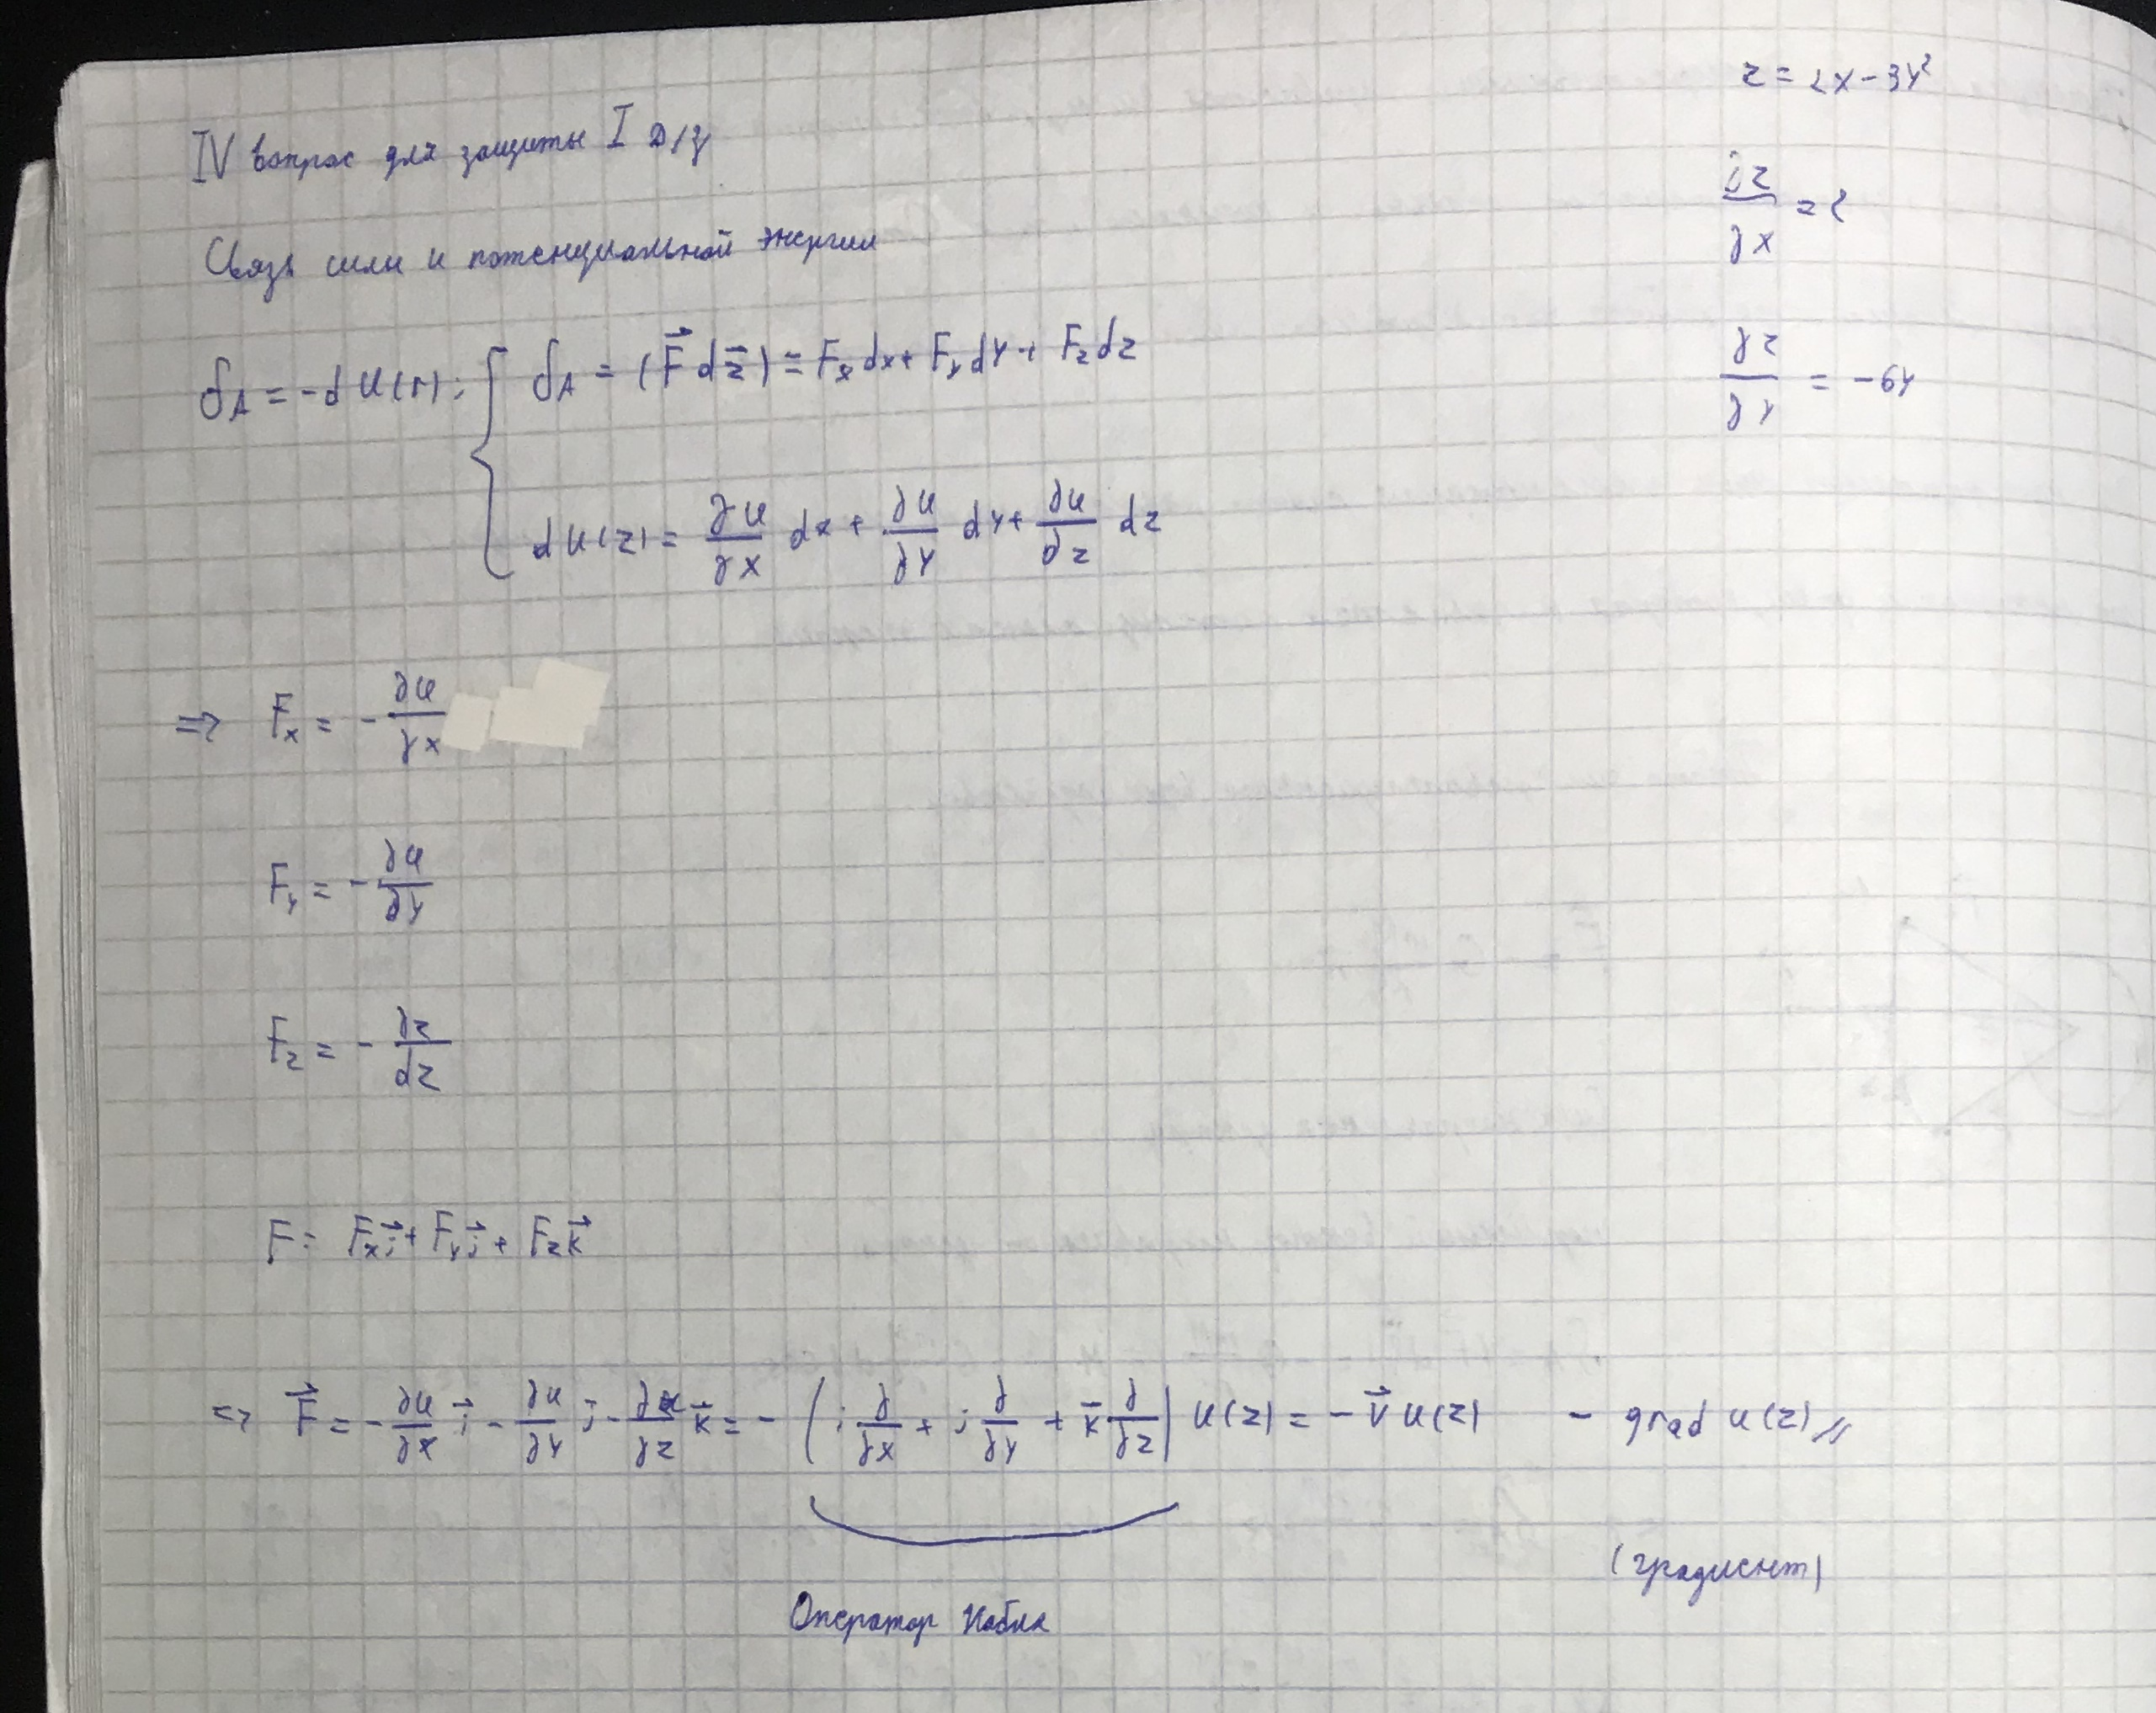 IV вопрос для защиты I Д/З
Связь силы и потенциальной энергии
δA = -dU(r); { δA = (F⃗ dr⃗) = Fx dx + Fy dy + Fz dz
dU(r) = ∂U/∂x dx + ∂U/∂y dy + ∂U/∂z dz
=> Fx = - ∂U/∂x
Fy = - ∂U/∂y
Fz = - ∂z/∂z
F = Fx i⃗ + Fy j⃗ + Fz k⃗
=> F⃗ = - ∂U/∂x i⃗ - ∂U/∂y j⃗ - ∂U/∂z k⃗ = - (i ∂/∂x + j ∂/∂y + k⃗ ∂/∂z) U(r) = - ∇⃗ U(r) - grad U(r) //
(градиент)
Оператор Набла
z = 2x - 3y²
∂z/∂x = 2
∂z/∂y = -6y